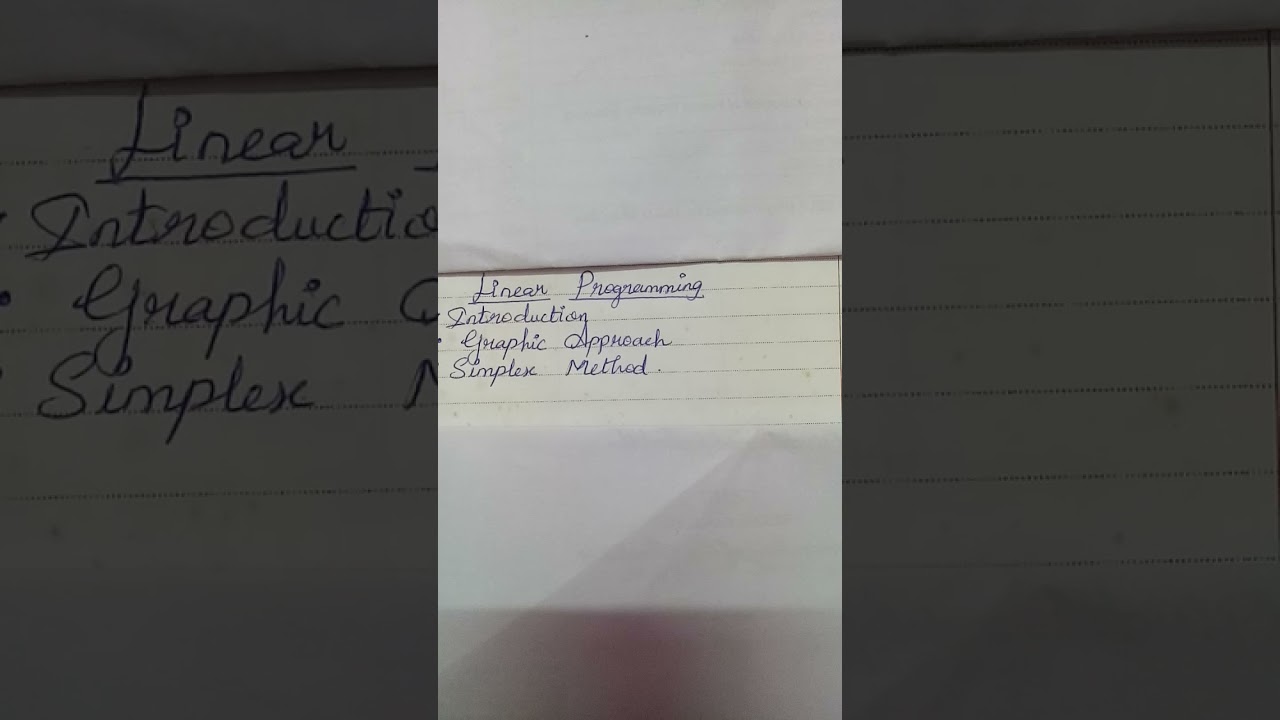 Linear Programming
Introduction
• Graphic Approach
Simplex Method.